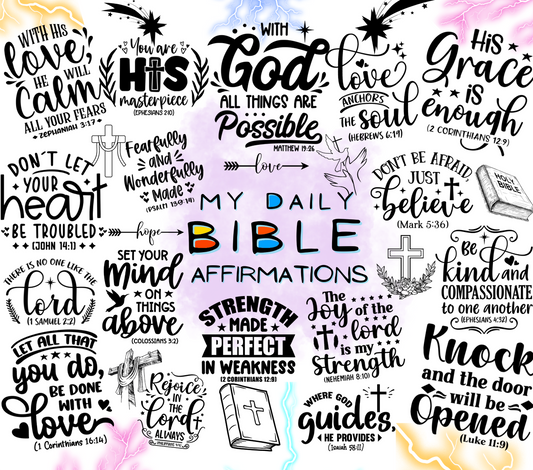 WITH HIS
love,
HE WILL
CALM
ALL YOUR FEARS
ZEPHANIAH 3:17
You are
HIS
masterpiece
(EPHESIANS 2:10)
WITH
God
ALL THINGS ARE
Possible
MATTHEW 19:26
love
ANCHORS
THE soul
(HEBREWS 6:19)
HIS
Grace
is
enough
(2 CORINTHIANS 12:9)
DON'T LET
YOUR
heart
BE TROUBLED
(JOHN 14:1)
Fearfully
and
Wonderfully
Made
(PSALM 139:14)
love
DON'T BE AFRAID,
JUST
believe
(Mark 5:36)
HOLY
BIBLE
hope
MY DAILY
BIBLE
AFFIRMATIONS
THERE IS NO ONE LIKE THE
lord
(1 SAMUEL 2:2)
SET YOUR
Mind
ON
THINGS
above
(COLOSSIANS 3:2)
STRENGTH
MADE
PERFECT
IN WEAKNESS
(2 CORINTHIANS 12:9)
The
Joy of the
lord
is my
Strength
(NEHEMIAH 8:10)
BE
kind and
COMPASSIONATE
to one another
(EPHESIANS 4:32)
LET ALL THAT
you do,
BE DONE
WITH
love
(1 Corinthians 16:14)
Rejoice
IN THE
Lord
ALWAYS
WHERE GOD
guides,
HE PROVIDES
(Isaiah 58:11)
Knock
and the door
will be
Opened
(Luke 11:9)